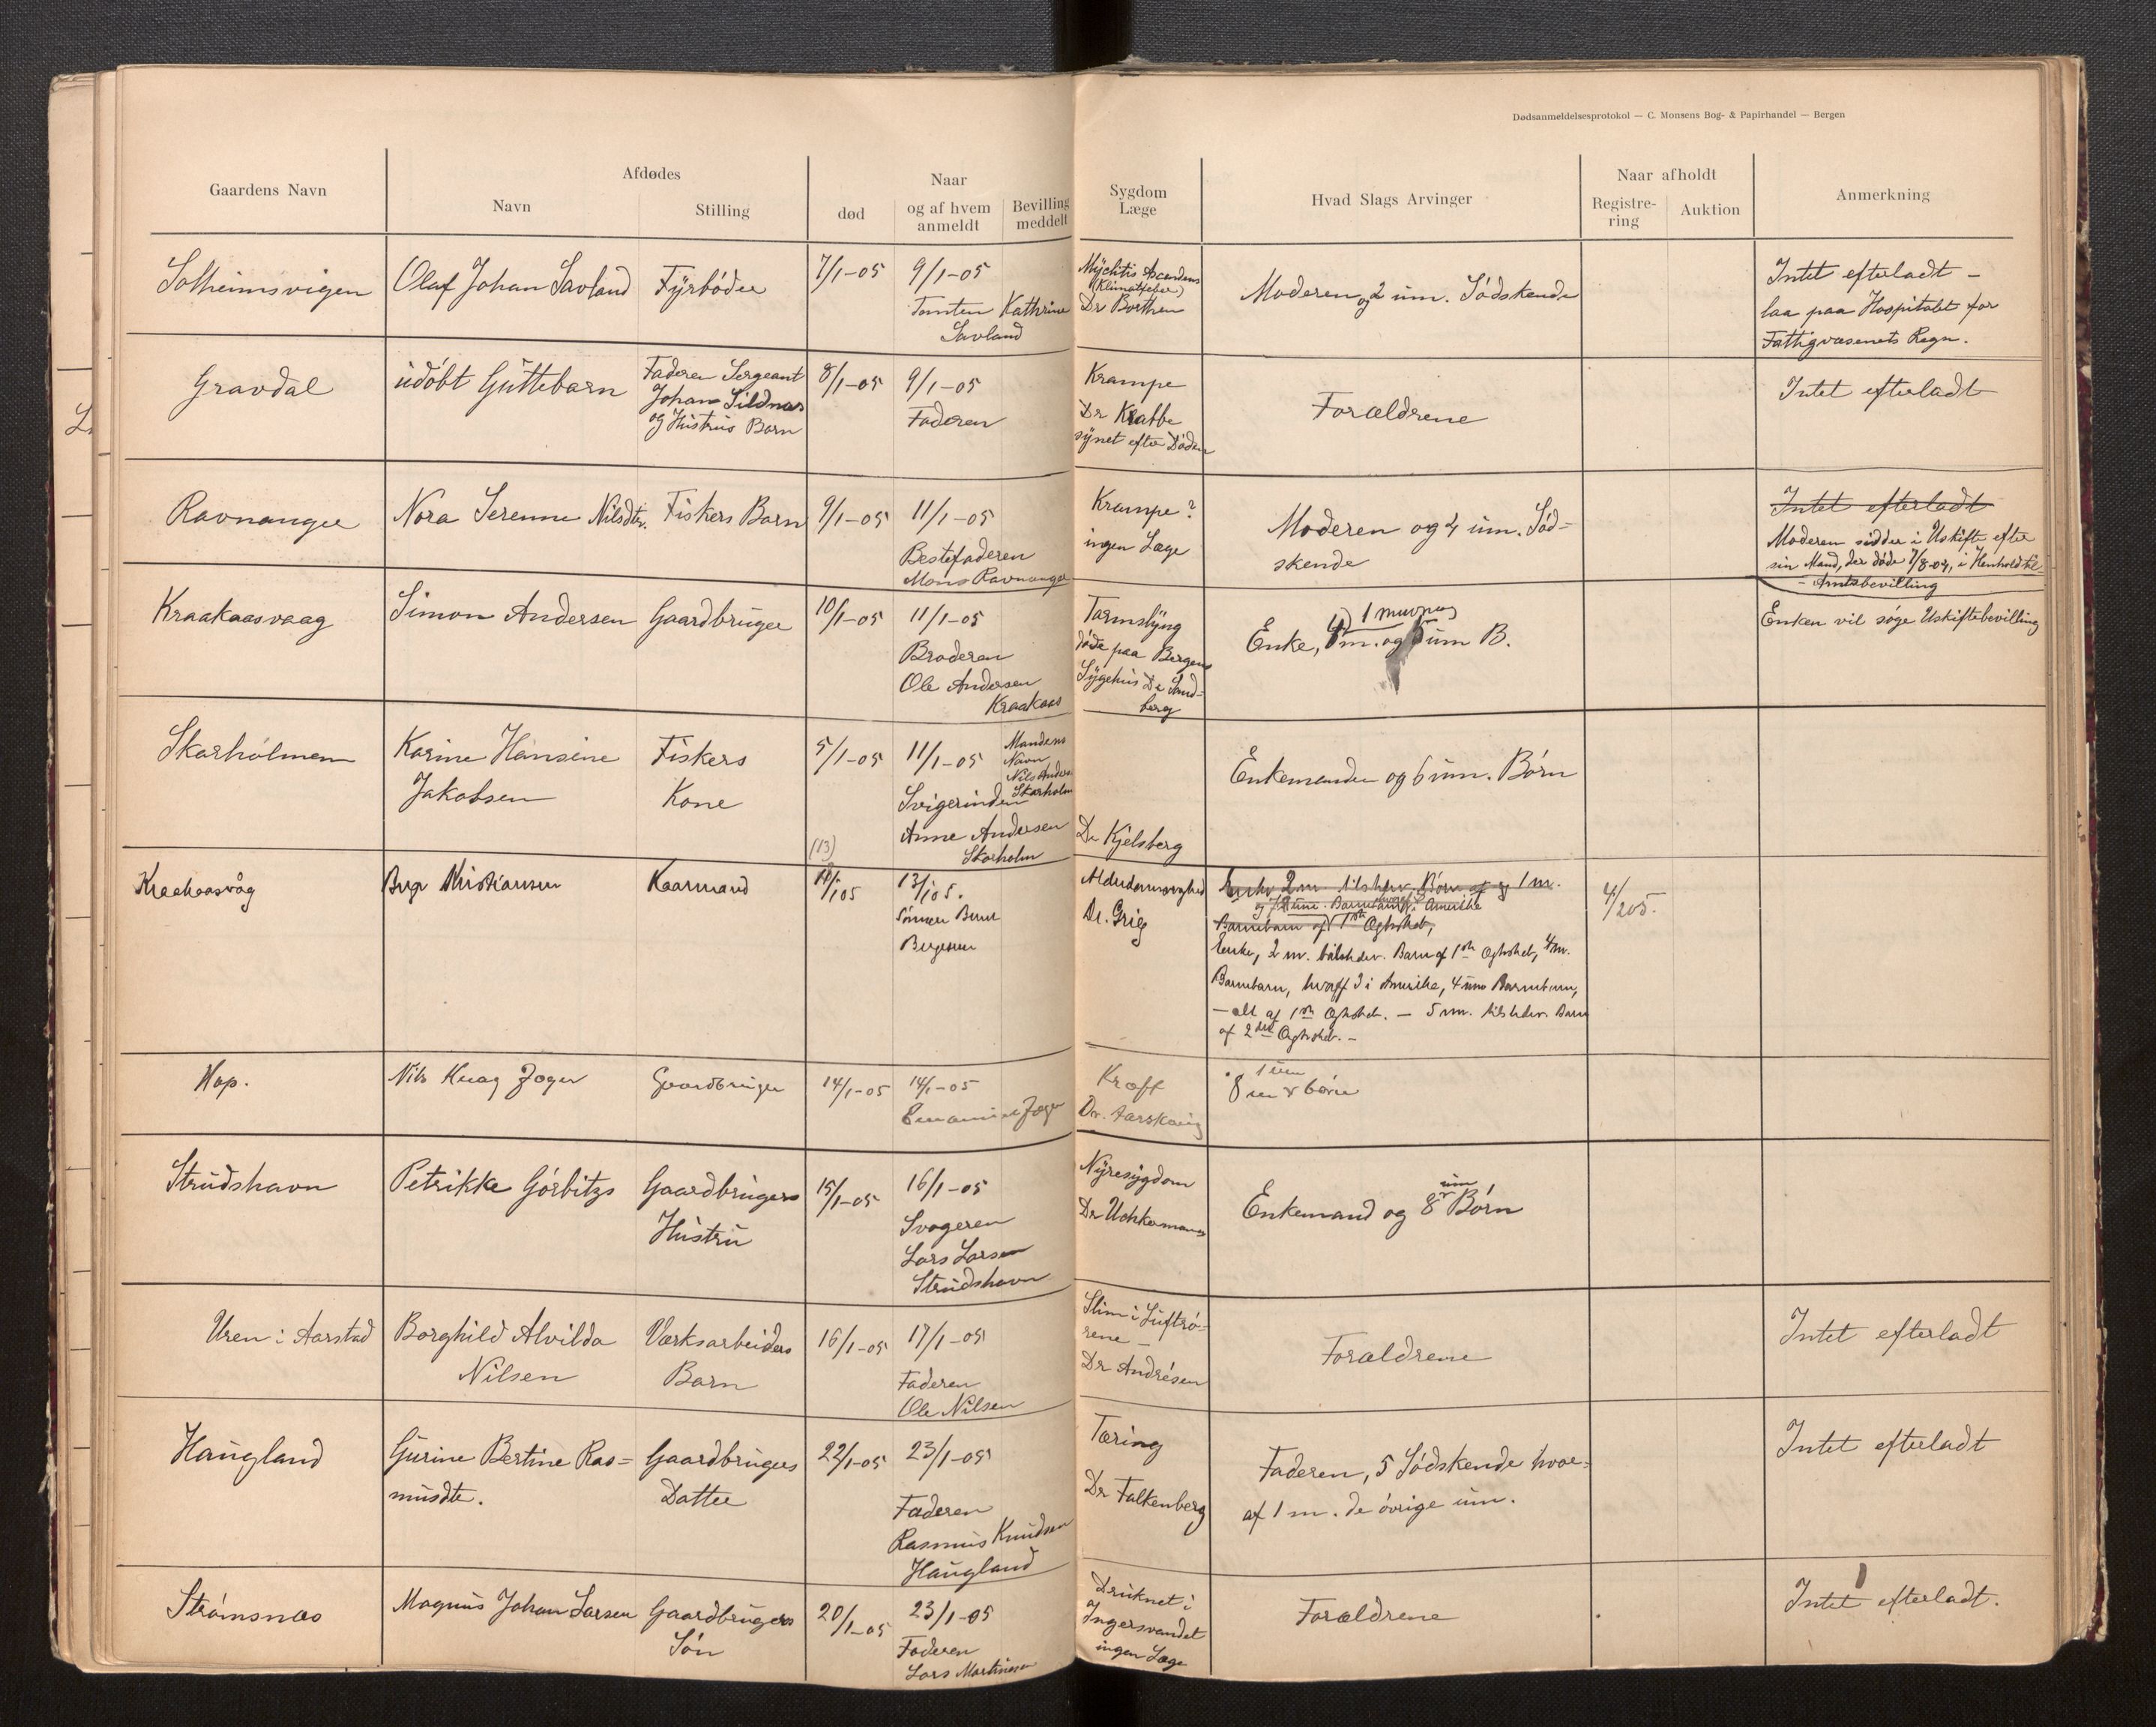 Dødsanmeldelsesprotokol — C. Monsens Bog- & Papirhandel — Bergen
Gaardens Navn
Afdødes
Navn
Stilling
død
Naar
og af hvem
anmeldt
Bevilling
meddelt
Sygdom
Læge
Hvad Slags Arvinger
Naar afholdt
Registre-
ring
Auktion
Anmerkning
Solheimsvigen
Olaf Johan Savland
Fyrbøder
7/1-05
9/1-05
Tanten Kathrine
Savland
(Klimatfeber)
Dr Borthen
Moderen og 2 um. Sødskende
Intet efterladt -
laa paa Hospitalet for
Fattigvæsenets Regn.
Gravdal
udøbt Guttebarn
Faderen Sergeant
Johan Sildnæs
og Hustrus Barn
8/1-05
9/1-05
Faderen
Krampe
Dr Krabbe
synet efter Døden
Forældrene
Intet efterladt
Ravnanger
Nora Serenne Nilsdtr.
Fiskers Barn
9/1-05
11/1-05
Bestefaderen
Mons Ravnanger
Krampe?
ingen Læge
Moderen og 4 um. Sød-
skende
Intet efterladt
Moderen sidder i Uskifte efter
sin Mand, der døde 7/8-04, i Henhold til
- Amtsbevilling
Kraakaasvaag
Simon Andersen
Gaardbruger
10/1-05
11/1-05
Broderen
Ole Andersen
Kraakaas
Tarmslyng
døde paa Bergens
Sygehus Dr Sand-
berg
Enke, m. og um B.
Enken vil søge Uskiftebevilling
Skarholmen
Karine Hansine
Jakobsen
Fiskers
Kone
5/1-05
11/1-05
Svigerinden
Anne Andersen
Skarholm
Mandens
Navn
Nils Anders.
Skarholm
Dr Kjelsberg
Enkemanden og 6 um. Børn
Kraakaasvåg
Birger Kristiansen
Kaarmand
(13)
11/1 05
13/1 05.
Sønnen Bernt
Bergesen
Alderdomssvaghed
Dr. Grieg
Enke, 2 m. tilstedev. Barn af 1ste Ægteskab, 4 m.
Barnebarn, hvoraf 3 i Amerika, 4 umn Barnebarn,
- alt af 1ste Ægteskab. - 5 m. tilstedev. Barn
af 2det Ægteskab. -
4/2 05.
Hop.
Nils Krag Jæger
Gaardbruger
14/1-05
14/1-05
Kræft
Dr. Aarskaug
1 um
8 m børn
Strudshavn
Petrikke Gørbitzs
Gaardbrugers
Hustru
15/1-05
16/1-05
Svogeren
Lars Larsen
Strudshavn
Nyresygdom
Dr Uchermann
Enkemand og 8 um Børn
Uren i Aarstad
Borghild Alvilda
Nilsen
Værksarbeiders
Barn
16/1-05
17/1-05
Faderen
Ole Nilsen
Slim i Luftrø-
rene -
Dr Andrésen
Forældrene
Intet efterladt
Haugland
Gurine Bertine Ras-
musdtr.
Gaardbrugers
Datter
22/1-05
23/1-05
Faderen
Rasmus Knudsen
Haugland
Tæring
Dr Falkenberg
Faderen, 5 Sødskende hvor-
af 1 m. de øvrige um.
Intet efterladt
Strømsnæs
Magnus Johan Larsen
Gaardbrugers
Søn
20/1-05
23/1-05
Faderen
Lars Martinsen
Druknet i
Ingersvandet
ingen Læge
Forældrene
Intet efterladt.